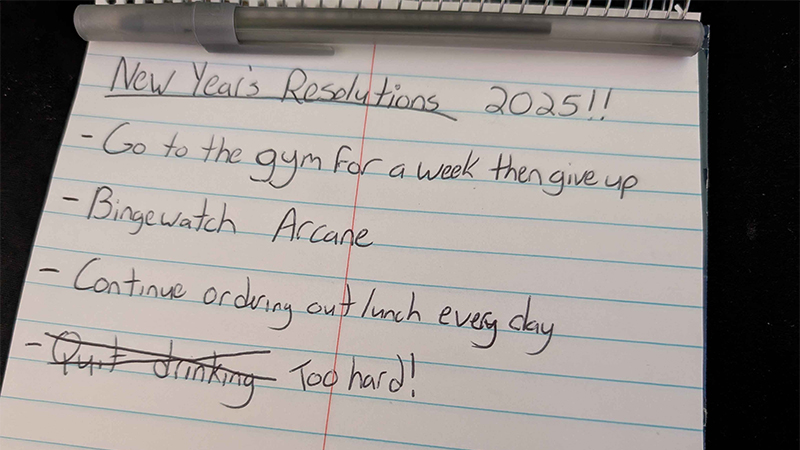 New Year's Resolutions 2025!!
- Go to the gym for a week then give up
- Bingewatch Arcane
- Continue ordering out lunch every day
- Quit drinking Too hard!